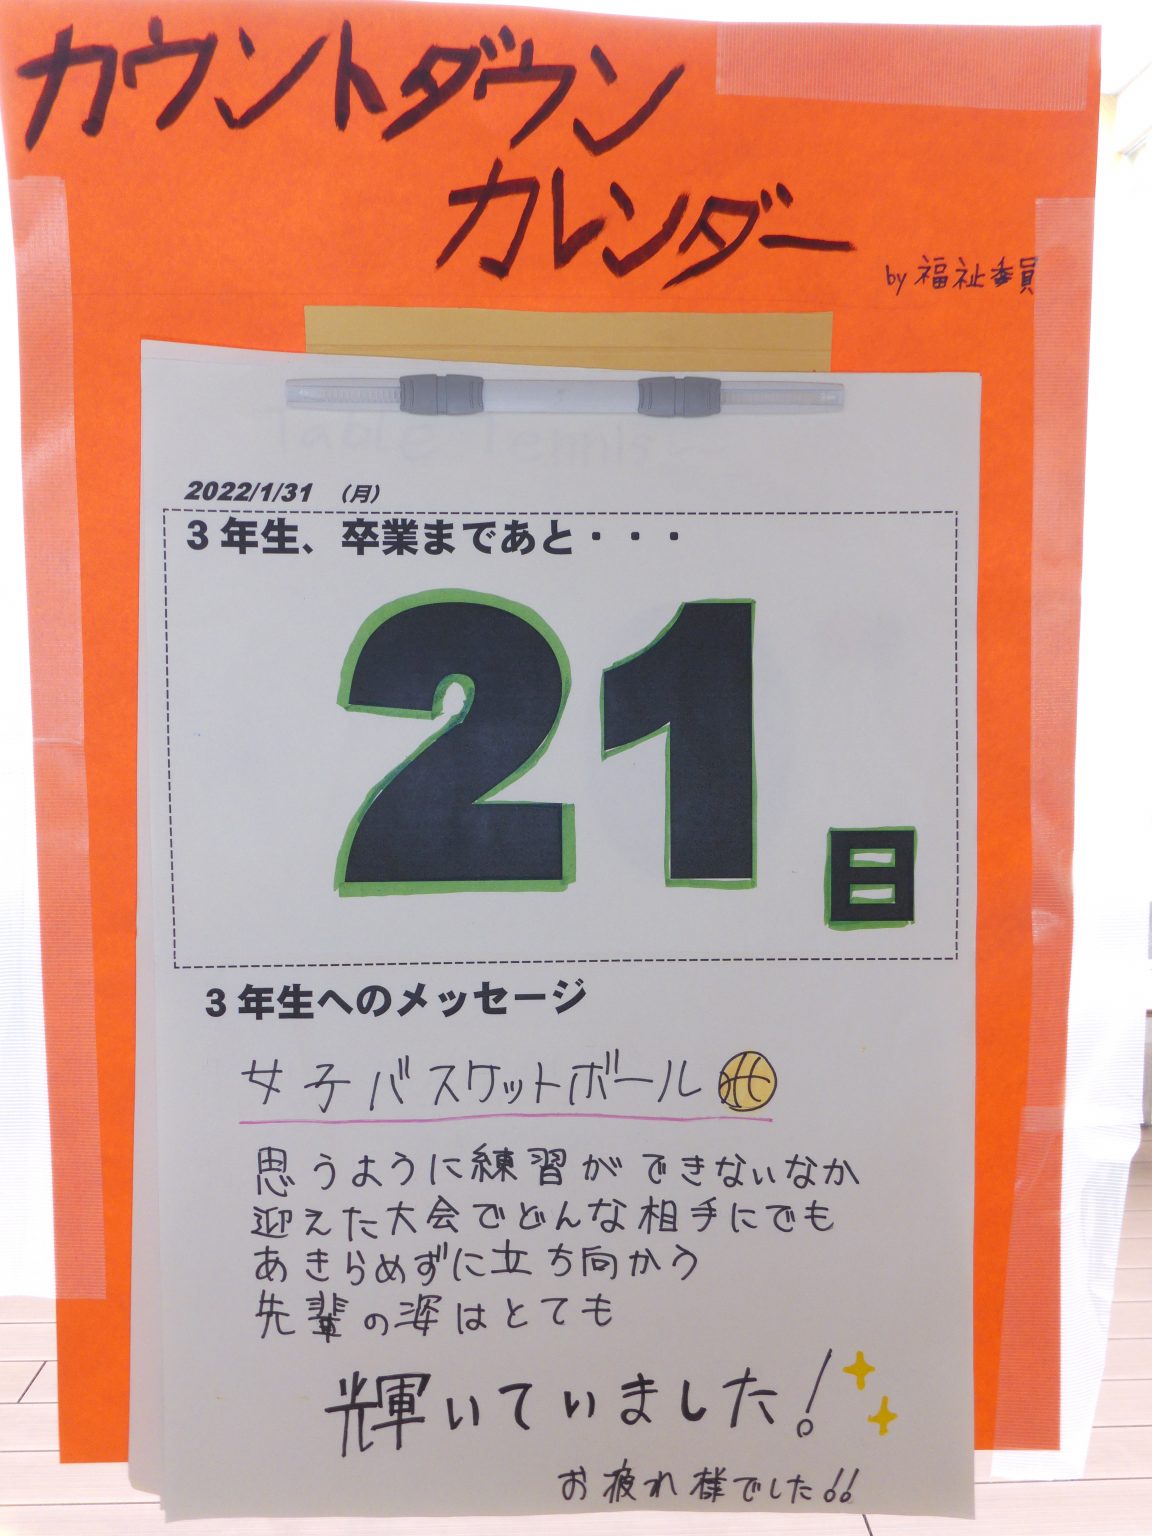 カウントダウン
カレンダー
by 福祉委員
Table Tennis
2022/1/31 （月）
3年生、卒業まであと・・・
21日
3年生へのメッセージ
女子バスケットボール
思うように練習ができないなか
迎えた大会でどんな相手にでも
あきらめずに立ち向かう
先輩の姿はとても
輝いていました!
お疲れ様でした!!